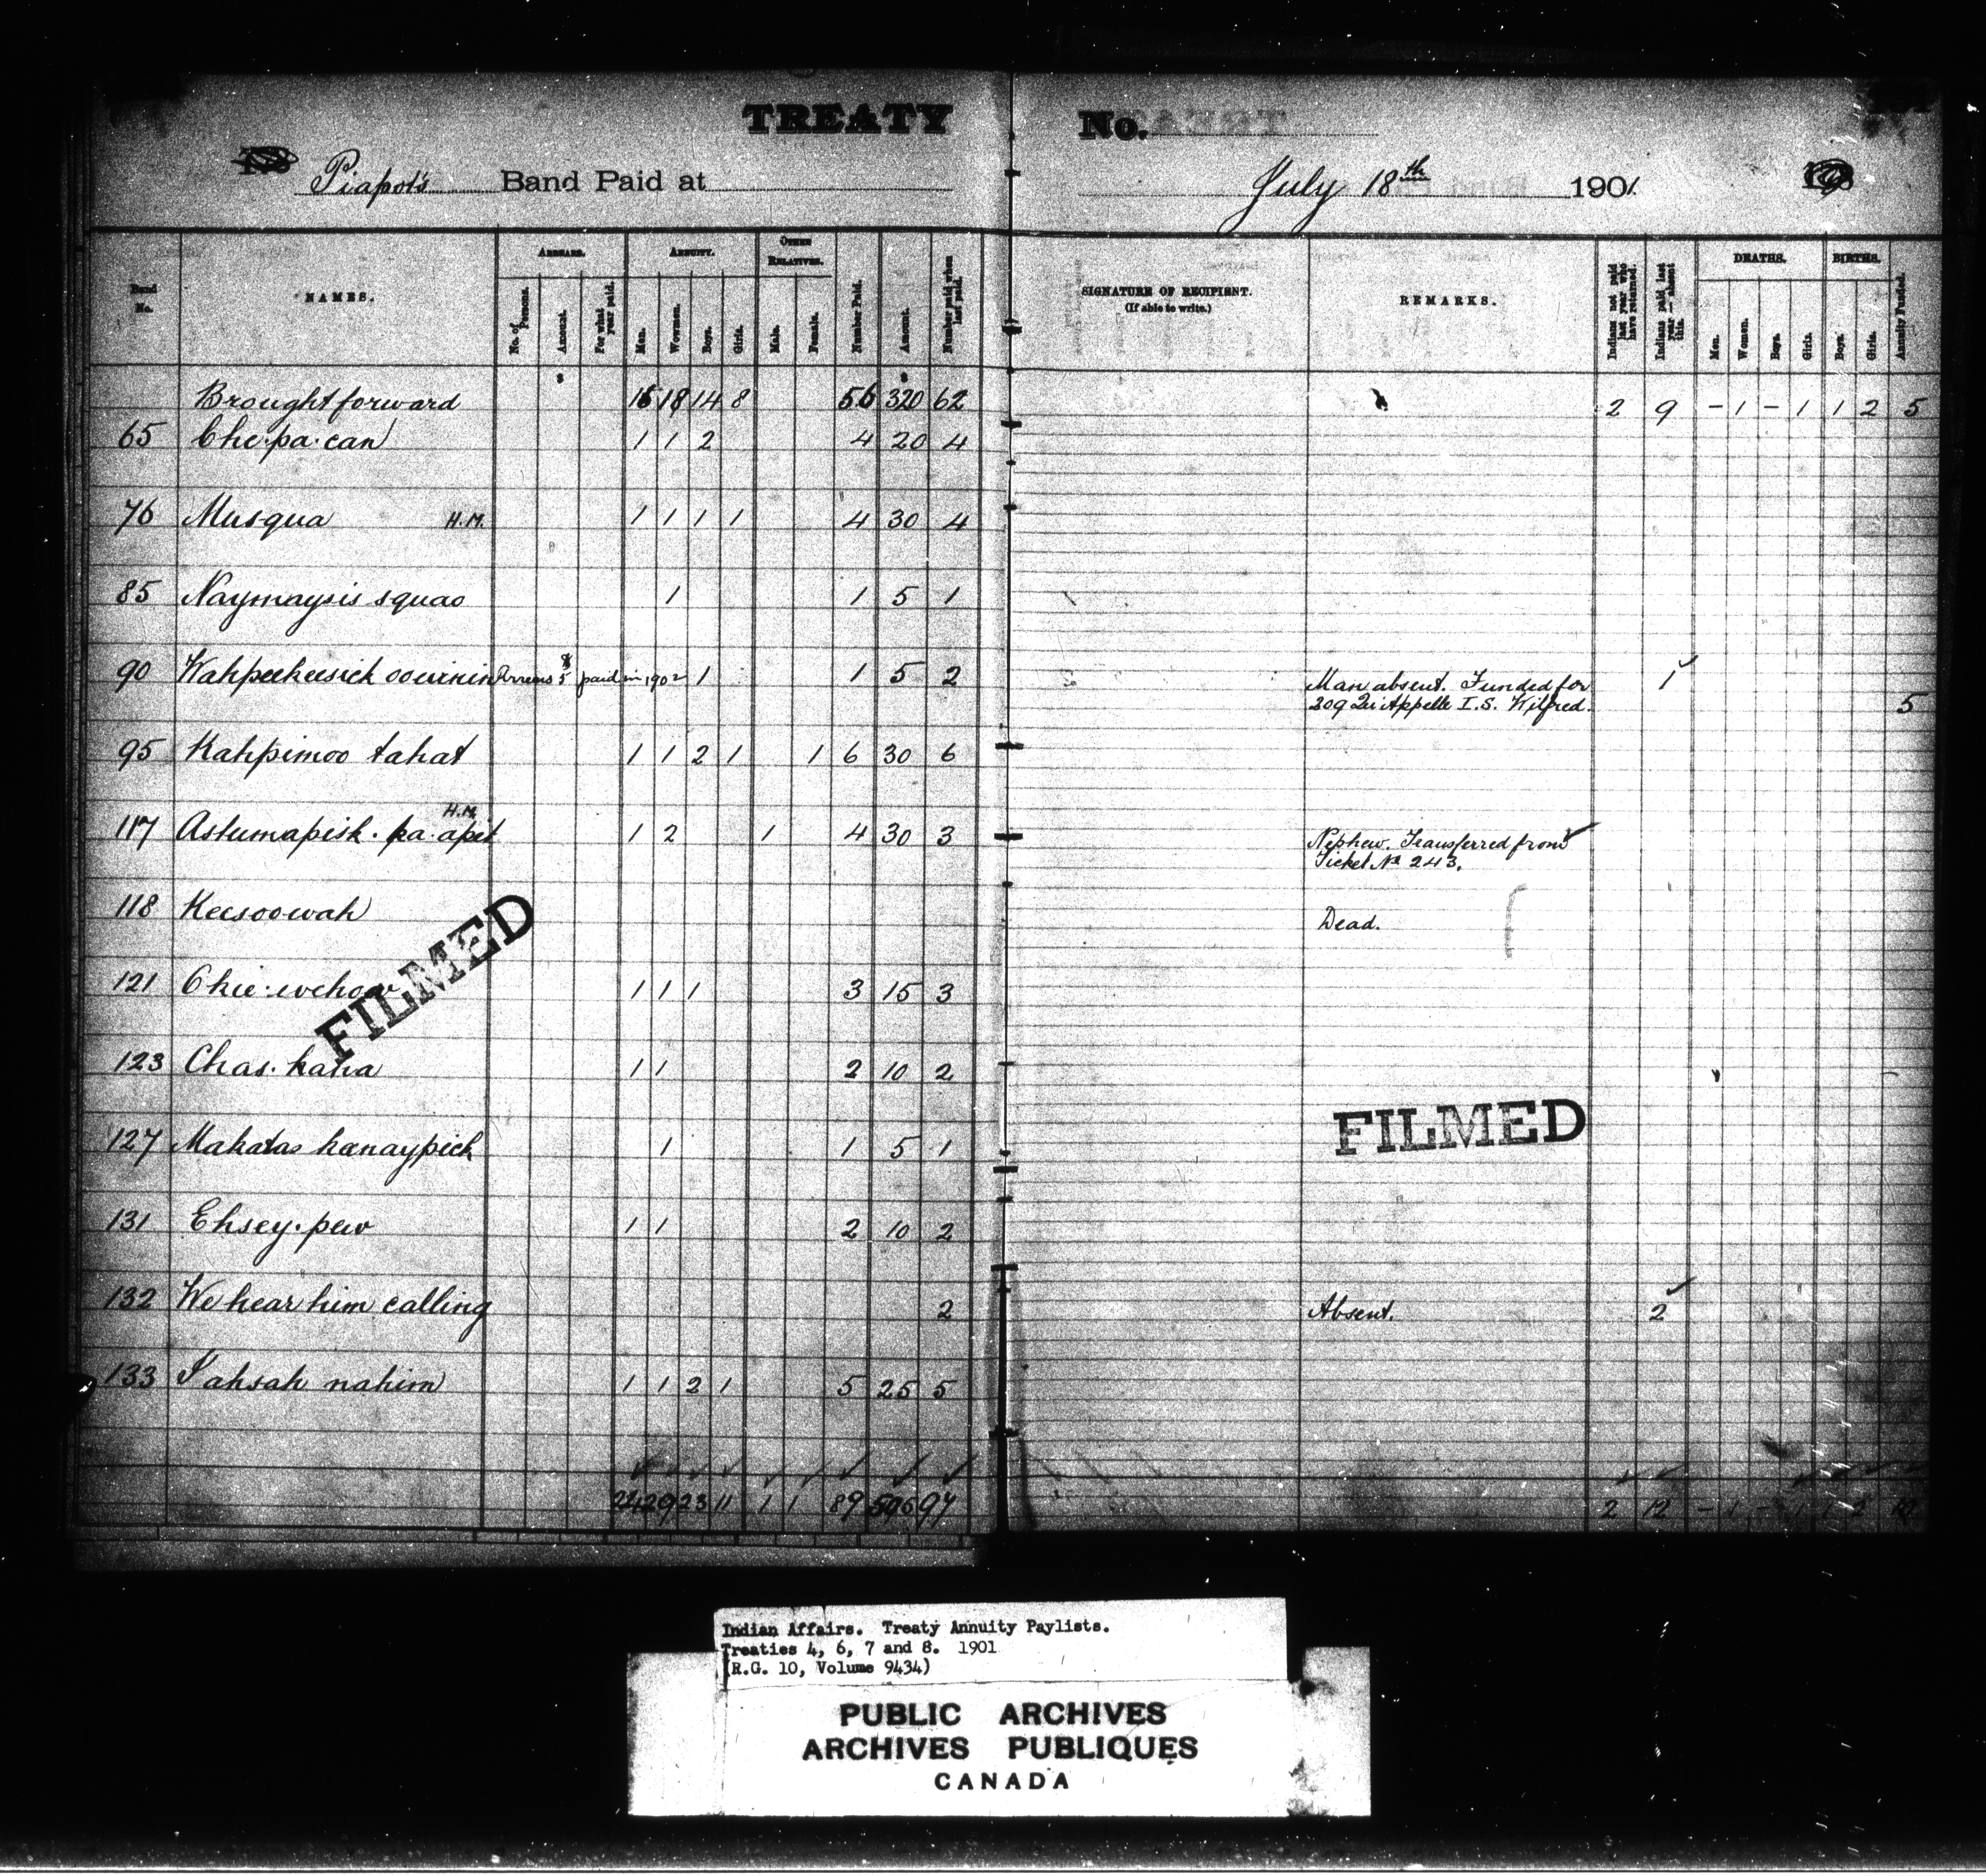 TREATY No.
Piapot's Band Paid at July 18th 1901
Band No.
NAMES.
ARREARS.
No. of Persons.
Amount.
For what year paid.
ANNUITY.
Men.
Women.
Boys.
Girls.
OTHER RELATIVES.
Male.
Female.
Number Paid.
Amount.
Number paid when last paid.
SIGNATURE OF RECIPIENT.
(If able to write.)
REMARKS.
Indians not paid last year who have returned.
Indians paid last year — absent this.
DEATHS.
Men.
Women.
Boys.
Girls.
BIRTHS.
Boys.
Girls.
Annuity Funded.
Brought forward 18 14 8 56 320 62 2 9 - 1 - 1 1 2 5
65 Che.pa.can 1 1 2 4 20 4
76 Musqua H.M. 1 1 1 1 4 30 4
85 Naymaysis squao 1 1 5 1
90 Wahpeekeesick oowinin Arrears $5 paid in 1902 1 1 5 2 Man absent. Funded for 1
209 Qu'Appelle I.S. Wilfred. 5
95 Kahpimoo tahat 1 1 2 1 1 6 30 6
H.M.
117 Astumapisk.ka.apit 1 2 1 4 30 3 Nephew. Transferred from
Ticket No 243.
118 Keesoowah Dead.
121 Chie.wehow 1 1 1 3 15 3
123 Chas.kana 1 1 2 10 2
127 Mahatas kanaypick 1 1 5 1
131 Ehsey.pew 1 1 2 10 2
132 We hear him calling 2 Absent. 2
133 Yahsah nahim 1 1 2 1 5 25 5
29 23 11 1 1 89 97 2 12 - 1 - 1 1 2 10
FILMED
FILMED
Indian Affairs. Treaty Annuity Paylists.
Treaties 4, 6, 7 and 8. 1901
(R.G. 10, Volume 9434)
PUBLIC ARCHIVES
ARCHIVES PUBLIQUES
CANADA